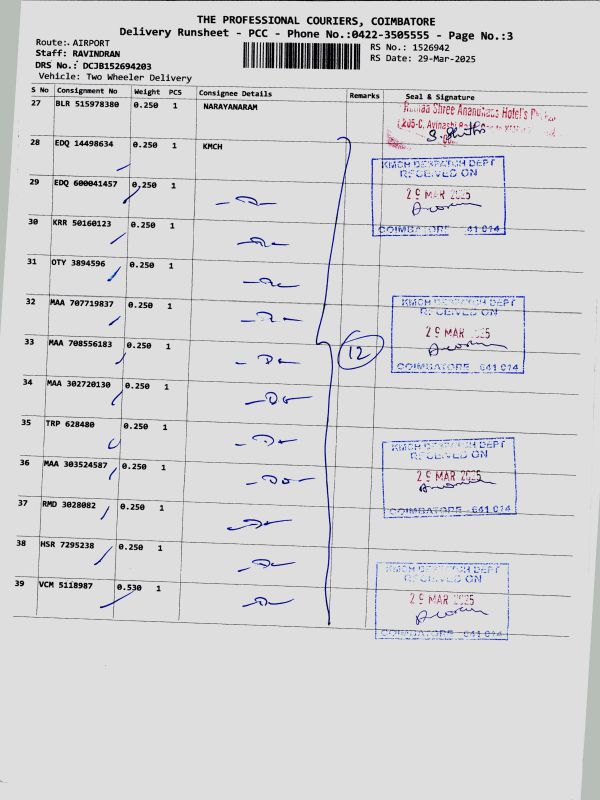 THE PROFESSIONAL COURIERS, COIMBATORE
Delivery Runsheet - PCC - Phone No.:0422-3505555 - Page No.:3
Route: AIRPORT
Staff: RAVINDRAN
DRS No.: DCJB152694203
Vehicle: Two Wheeler Delivery
RS No.: 1526942
RS Date: 29-Mar-2025
S No Consignment No Weight PCS Consignee Details Remarks Seal & Signature
27 BLR 515978380 0.250 1 NARAYANARAM
28 EDQ 14498634 0.250 1 KMCH
KMCH DESPATCH DEPT
RECEIVED ON
29 MAR 2025
COIMBATORE 641 014
29 EDQ 600041457 0.250 1 -Do-
30 KRR 50160123 0.250 1 -Do-
31 OTY 3894596 0.250 1 -Do-
32 MAA 707719837 0.250 1 -Do-
KMCH DESPATCH DEPT
RECEIVED ON
29 MAR 2025
COIMBATORE 641 014
33 MAA 708556183 0.250 1 -Do- 12
34 MAA 302720130 0.250 1 -Do-
35 TRP 628480 0.250 1 -Do-
KMCH DESPATCH DEPT
RECEIVED ON
29 MAR 2025
COIMBATORE 641 014
36 MAA 303524587 0.250 1 -Do-
37 RMD 3028082 0.250 1 -Do-
38 HSR 7295238 0.250 1 -Do-
KMCH DESPATCH DEPT
RECEIVED ON
29 MAR 2025
COIMBATORE 641 014
39 VCM 5118987 0.530 1 -Do-